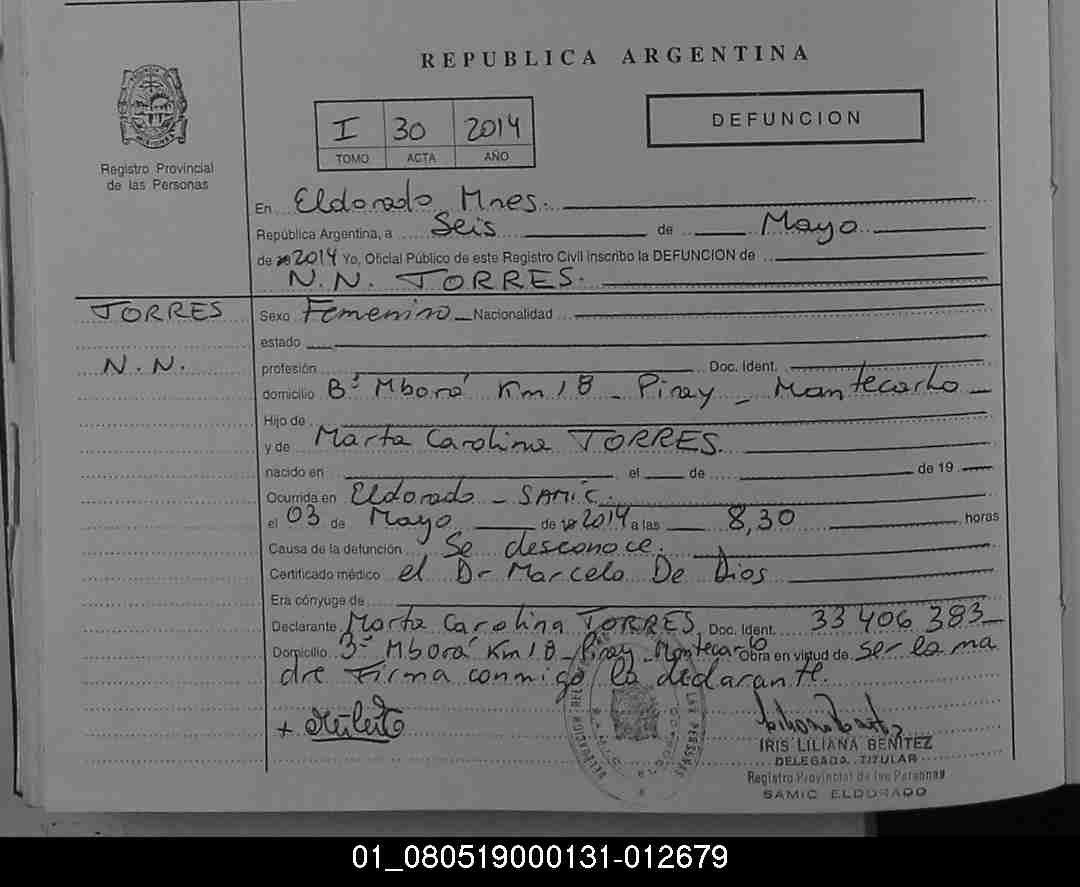 REPUBLICA ARGENTINA
I 30 2014
TOMO ACTA AÑO
DEFUNCION
Registro Provincial
de las Personas
En Eldorado Mnes.
República Argentina, a Seis de Mayo
de 2014 Yo, Oficial Público de este Registro Civil inscribo la DEFUNCION de
N.N. TORRES.
TORRES
N.N.
Sexo Femenino Nacionalidad
estado
profesión Doc. Ident.
domicilio Bº Mborá Km 18 - Piray - Montecarlo
Hijo de
y de Marta Carolina TORRES.
nacido en el de de 19
Ocurrida en Eldorado - SAMIC.
el 03 de Mayo de 2014 a las 8,30 horas
Causa de la defunción Se desconoce.
Certificado médico el Dr Marcelo De Dios
Era cónyuge de
Declarante Marta Carolina TORRES Doc. Ident. 33406383
Domicilio Bº Mborá Km 18 - Piray - Montecarlo Obra en virtud de ser la ma
dre Firma conmigo la declarante.
IRIS LILIANA BENITEZ
DELEGADA TITULAR
Registro Provincial de las Personas
SAMIC ELDORADO
01_080519000131-012679